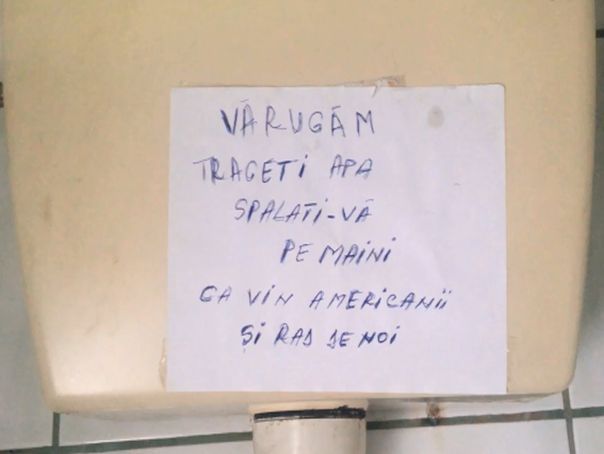 VĂRUGĂM
TRAGETI APA
SPALATI-VĂ
PE MAINI
CA VIN AMERICANII
ȘI RAD DE NOI